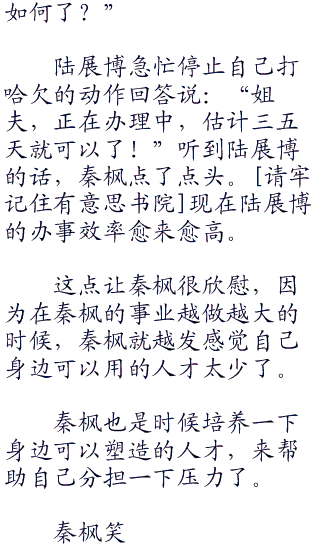 如何了？”
陆展博急忙停止自己打
哈欠的动作回答说：“姐
夫，正在办理中，估计三五
天就可以了！”听到陆展博
的话，秦枫点了点头。[请牢
记住有意思书院]现在陆展博
的办事效率愈来愈高。
这点让秦枫很欣慰，因
为在秦枫的事业越做越大的
时候，秦枫就越发感觉自己
身边可以用的人才太少了。
秦枫也是时候培养一下
身边可以塑造的人才，来帮
助自己分担一下压力了。
秦枫笑